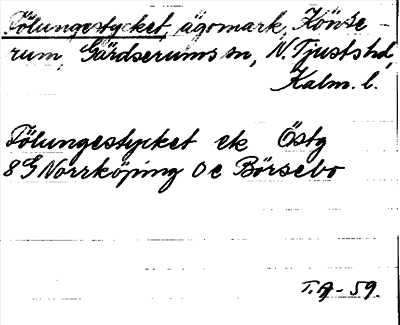 Fölungestycket, ägomark, Hönse-
rum, Gärdserums sn, N. Tjusts hd,
Kalm. l.
Fölungestycket ek Östg
8 G Norrköping 0 e Börsebo
T.A-59.